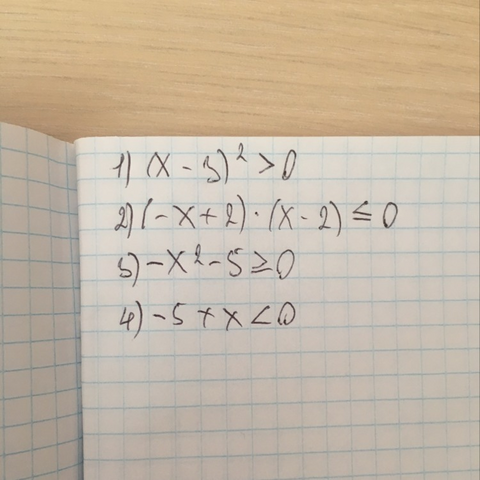 1) (x - 3)² > 0
2) (-x + 2) · (x - 2) ≤ 0
3) -x² - 5 ≥ 0
4) -5 + x < 0